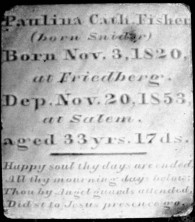 Paulina Cath. Fisher
(born Snider)
Born Nov. 3, 1820,
at Friedberg.
Dep. Nov. 20, 1853
at Salem.
aged 33 yrs. 17 ds.
Happy soul thy days are ended
All thy mourning days below
Thou by Angel guards attended
Didst to Jesus presence go